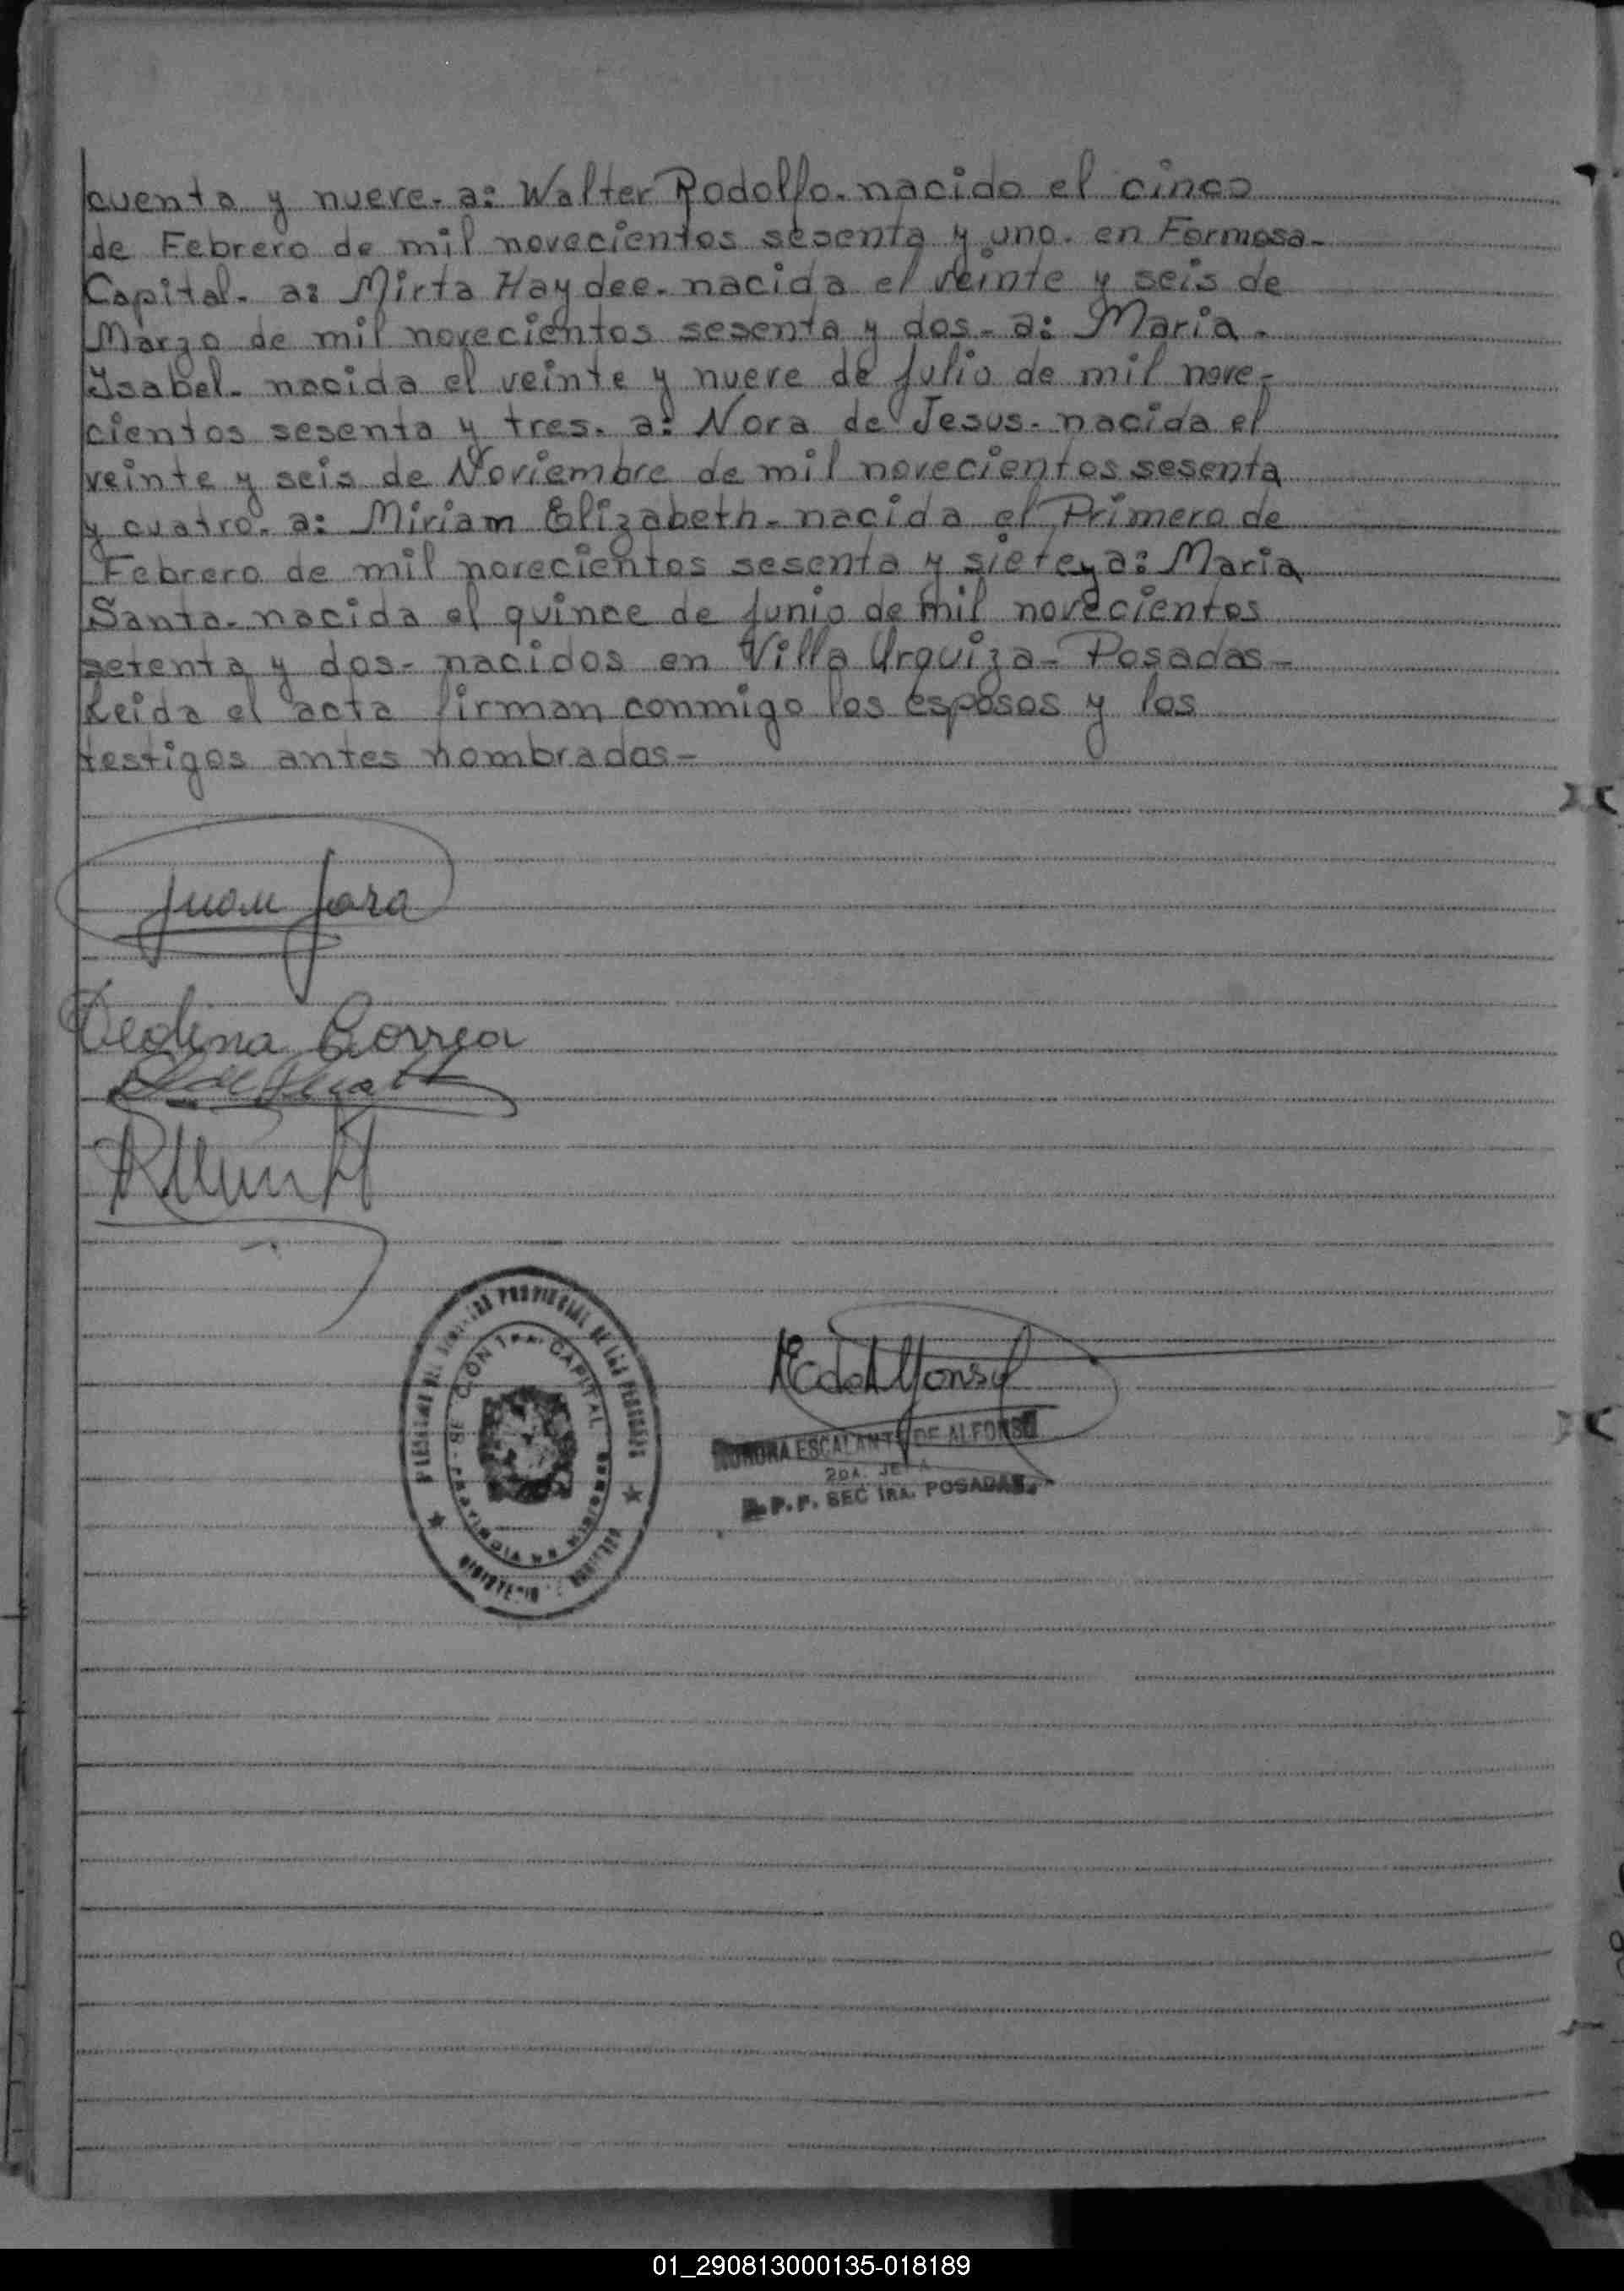 cuenta y nueve- a: Walter Rodolfo. nacido el cinco
de Febrero de mil novecientos sesenta y uno. en Formosa-
Capital- a: Mirta Haydee. nacida el veinte y seis de
Marzo de mil novecientos sesenta y dos- a: Maria-
Ysabel- nacida el veinte y nueve de Julio de mil nove-
cientos sesenta y tres. a: Nora de Jesus- nacida el
veinte y seis de Noviembre de mil novecientos sesenta
y cuatro- a: Miriam Elizabeth- nacida el Primero de
Febrero de mil novecientos sesenta y siete y a: Maria
Santa- nacida el quince de Junio de mil novecientos
setenta y dos- nacidos en Villa Urquiza- Posadas-
Leida el acta firman conmigo los esposos y los
testigos antes nombrados-
Juan Jara
Correa
PROVINCIAL DE LAS PERSONAS
SECCION 1RA. CAPITAL
ESCALANTE DE ALFONSO
2DA. JEFA
R. P. P. SEC 1RA. POSADAS
01_290813000135-018189